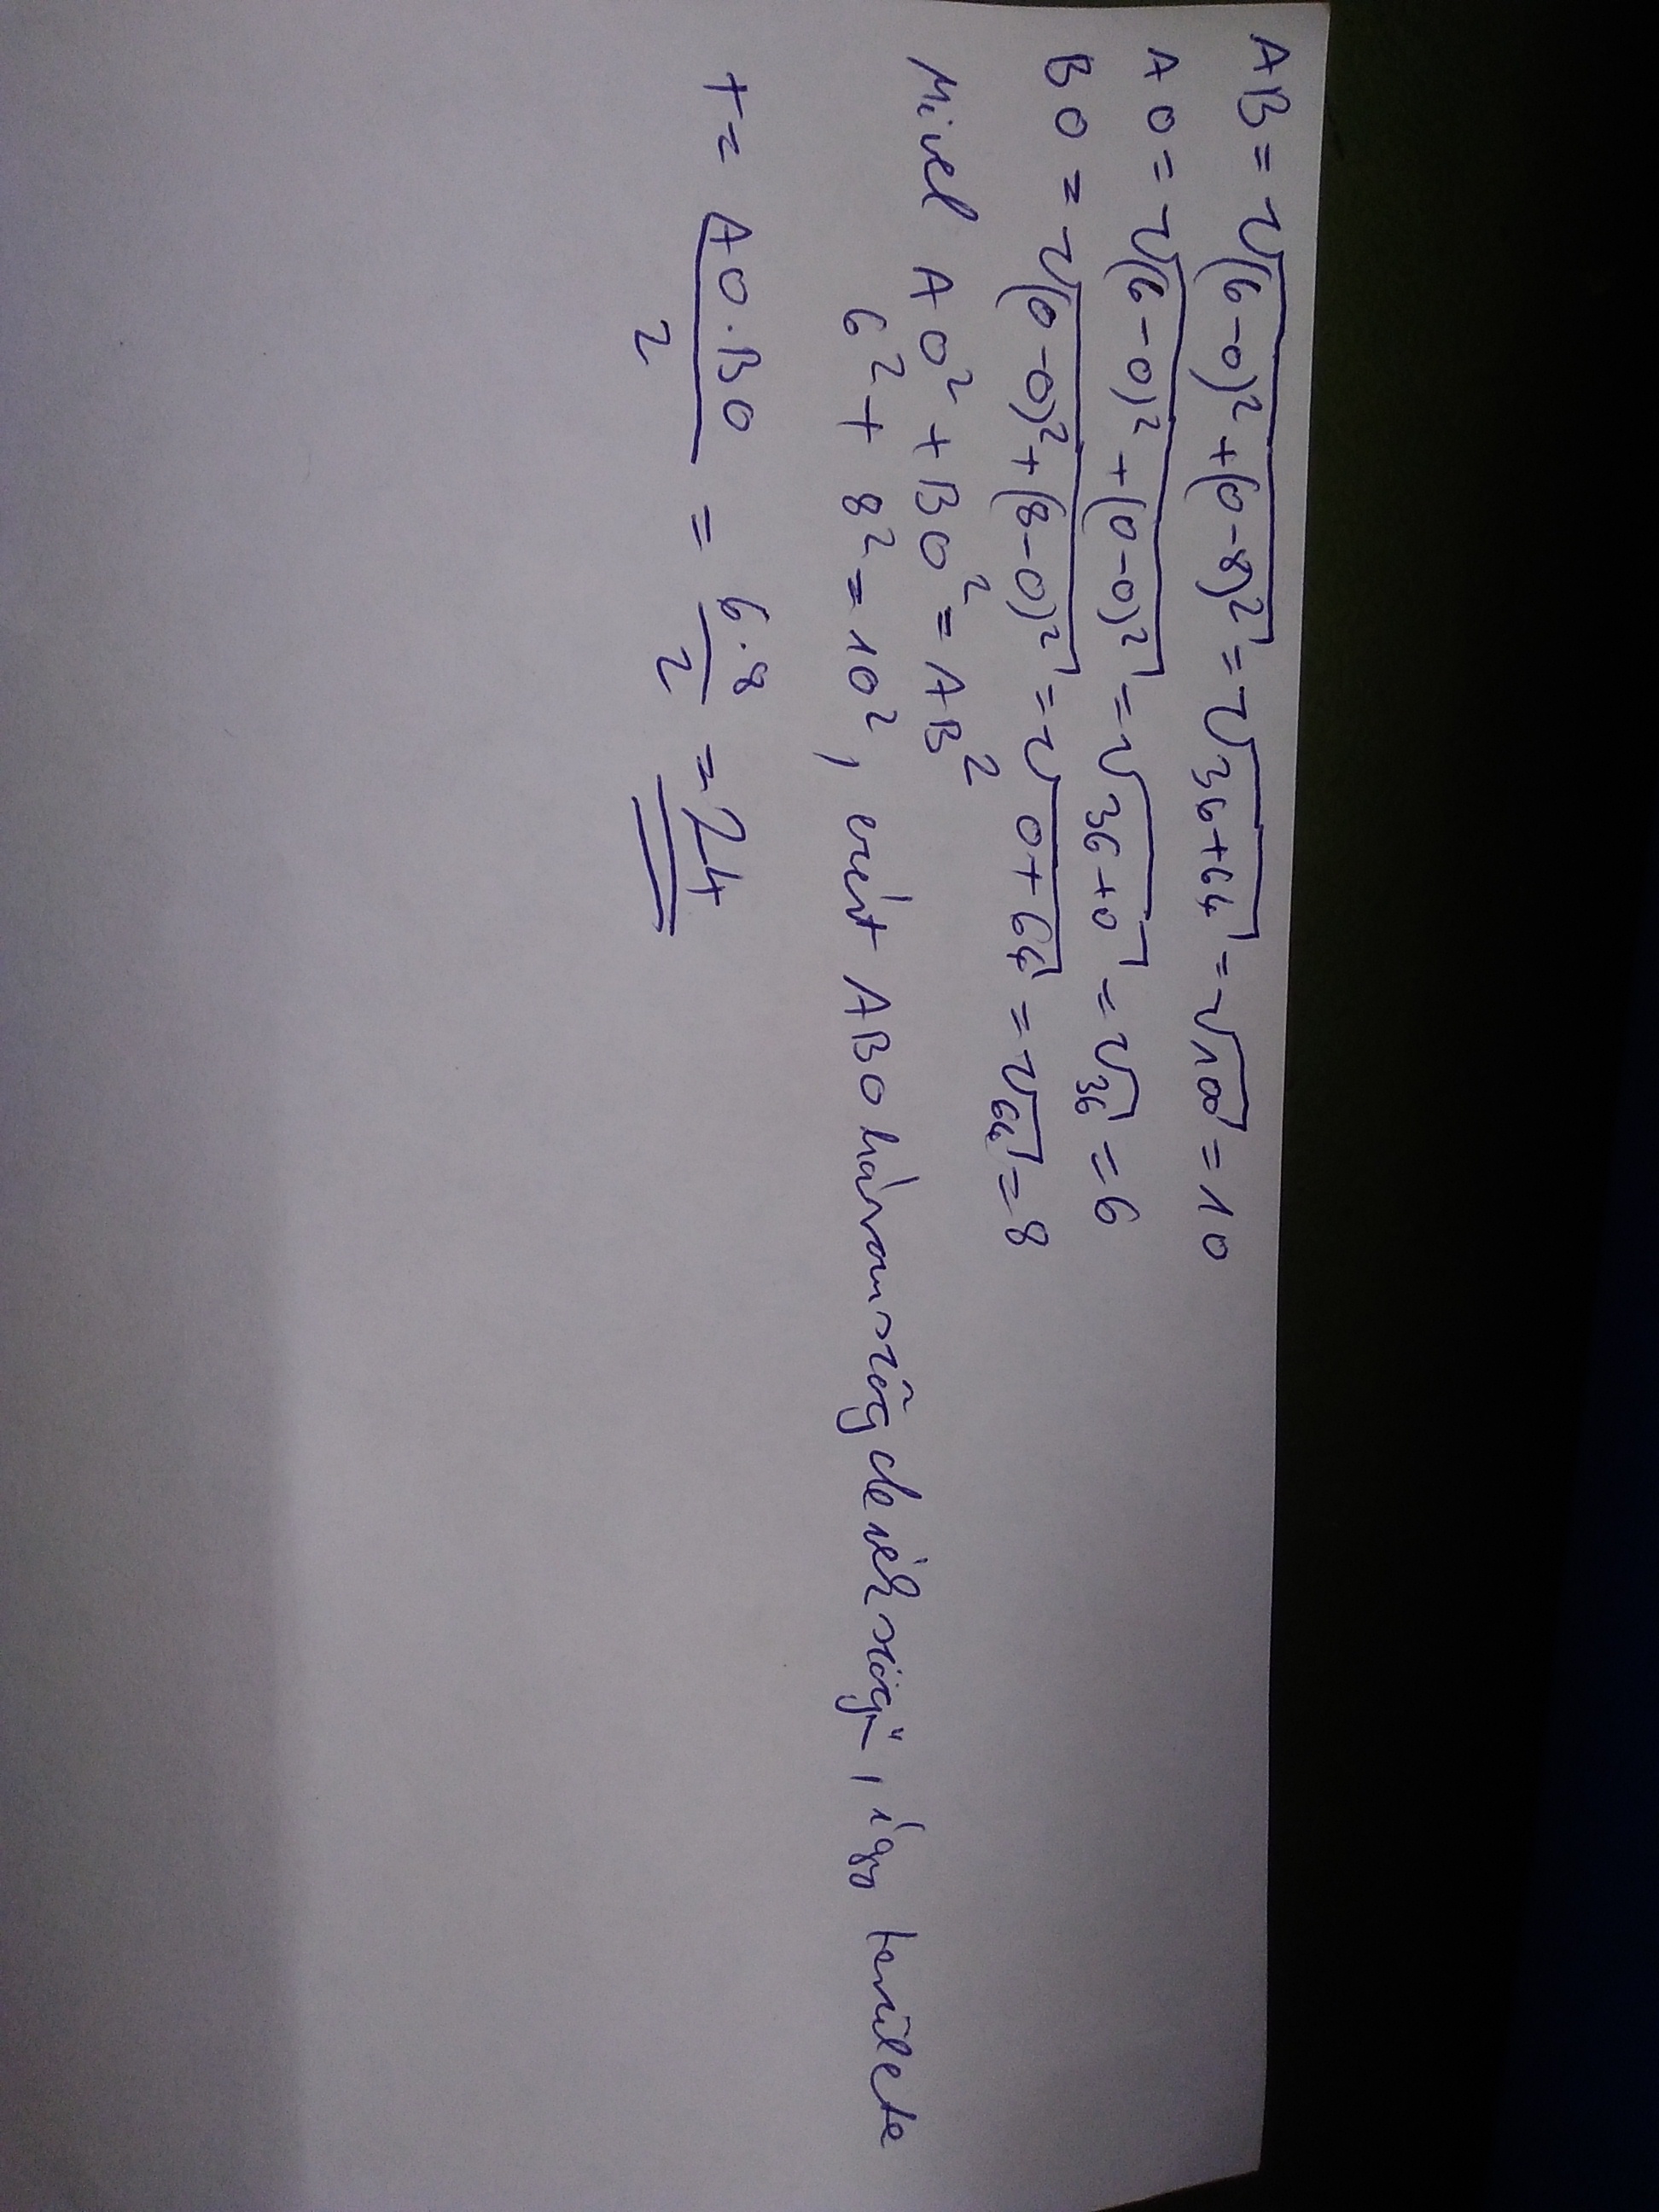 AB = √(6-0)²+(0-8)² = √36+64 = √100 = 10
AO = √(6-0)²+(0-0)² = √36+0 = √36 = 6
BO = √(0-0)²+(8-0)² = √0+64 = √64 = 8
Mivel AO²+BO² = AB²
6²+8² = 10², ezért ABO háromszög derékszögű, így területe
t = AO·BO/2 = 6·8/2 = 24